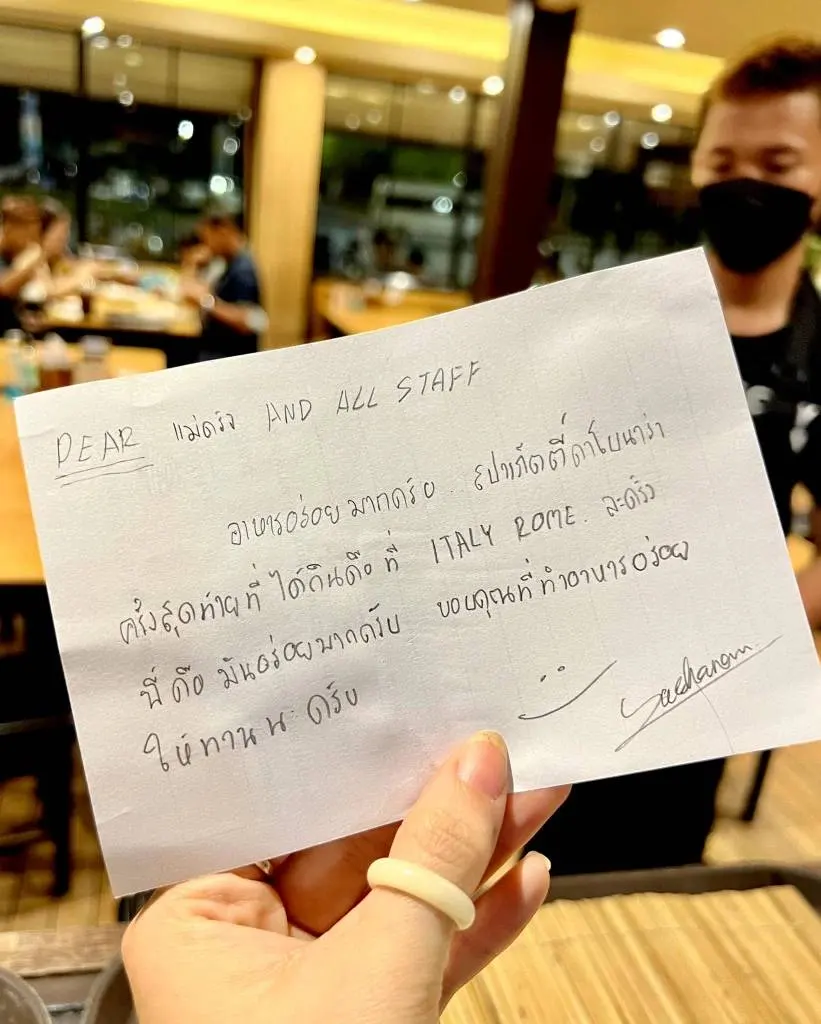 DEAR แม่ครัว AND ALL STAFF
อาหารอร่อยมากครับ สปาเก็ตตี้คาโบนาร่า
ครั้งสุดท้ายที่ได้กินคือที่ ITALY ROME. ละครั้ง
นี้ คือ มันอร่อยมากครับ ขอบคุณที่ทำอาหารอร่อย
ให้ทานนะครับ